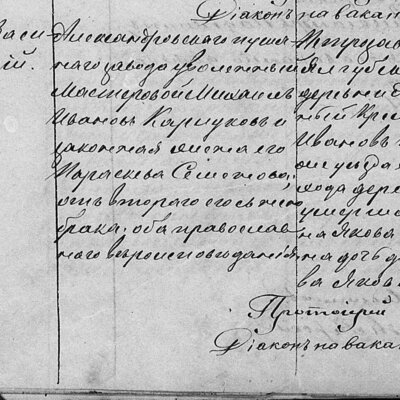 Діаконъ на вака
Васи
лій.
Александровскаго пуша
чнаго завода уволенный
Мастеровой Михаилъ
Ивановъ Кармуковъ и
законная жена его
Параскева Семенова,
отъ втораго его съ нею
брака, оба православ
наго вѣроисповѣданія
губе
деревни
ный Кре
Ивановъ
уѣзда
дере
умерша
на Яковa
на дочь д
ва Яков
Протоіерей
Діаконъ на вака